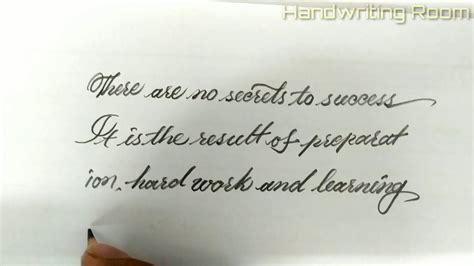 Handwriting Room
There are no secrets to success
It is the result of preparat
ion. hard work and learning